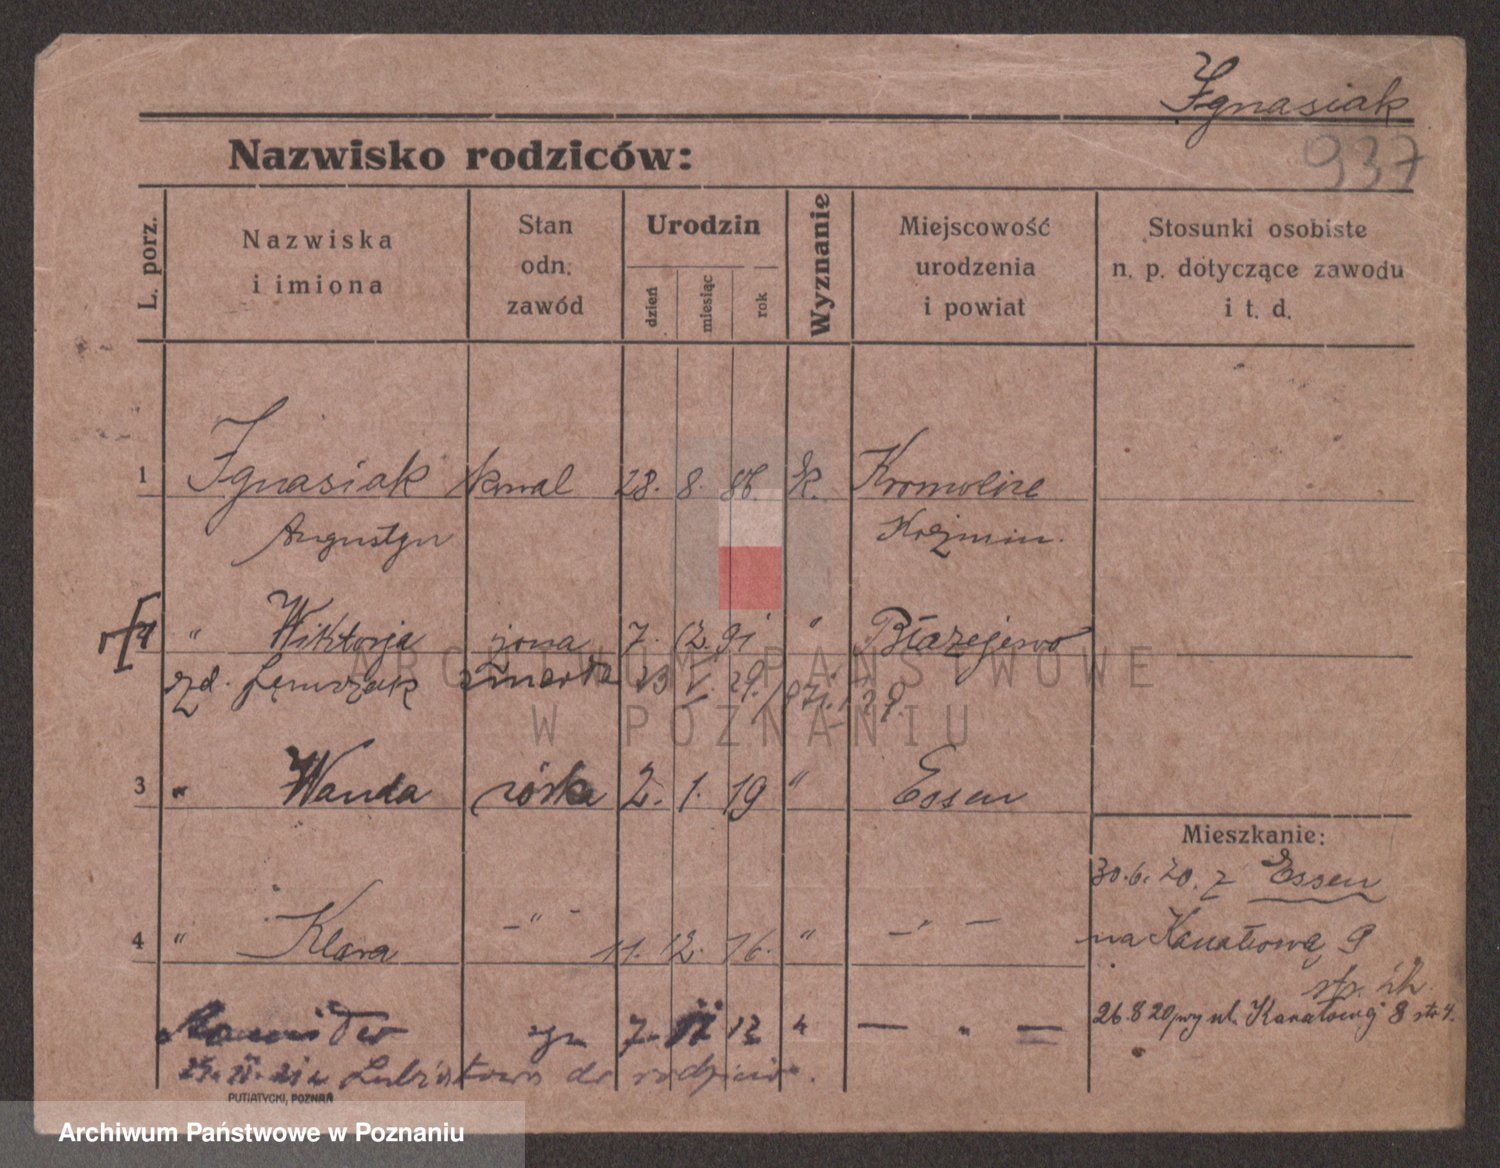 Ignasiak
937
Nazwisko rodziców:
L. porz.
Nazwiska
i imiona
Stan
odn.
zawód
Urodzin
dzień
miesiąc
rok
Wyznanie
Miejscowość
urodzenia
i powiat
Stosunki osobiste
n. p. dotyczące zawodu
i t. d.
1 Ignasiak kowal 28. 8. 86. k. Kromolice
Augustyn Koźmin.
" Wiktorja żona 7. 12. 91 " Błażejewo
zd. zmarła 23 V. 29.
3 " Wanda córka 2. 1. 19 " Essen
Mieszkanie:
30.6.20. z Essen
4 " Klara - " - 11. 12. 16. " - " -
na Kanałową 9
str. 2h.
Stanisław syn 7. 12 " — " —
26.8 20 przy ul. Kanałowej 8 str 4.
do rodziców.
PUTIATYCKI, POZNAŃ
ARCHIWUM PAŃSTWOWE
W POZNANIU
Archiwum Państwowe w Poznaniu